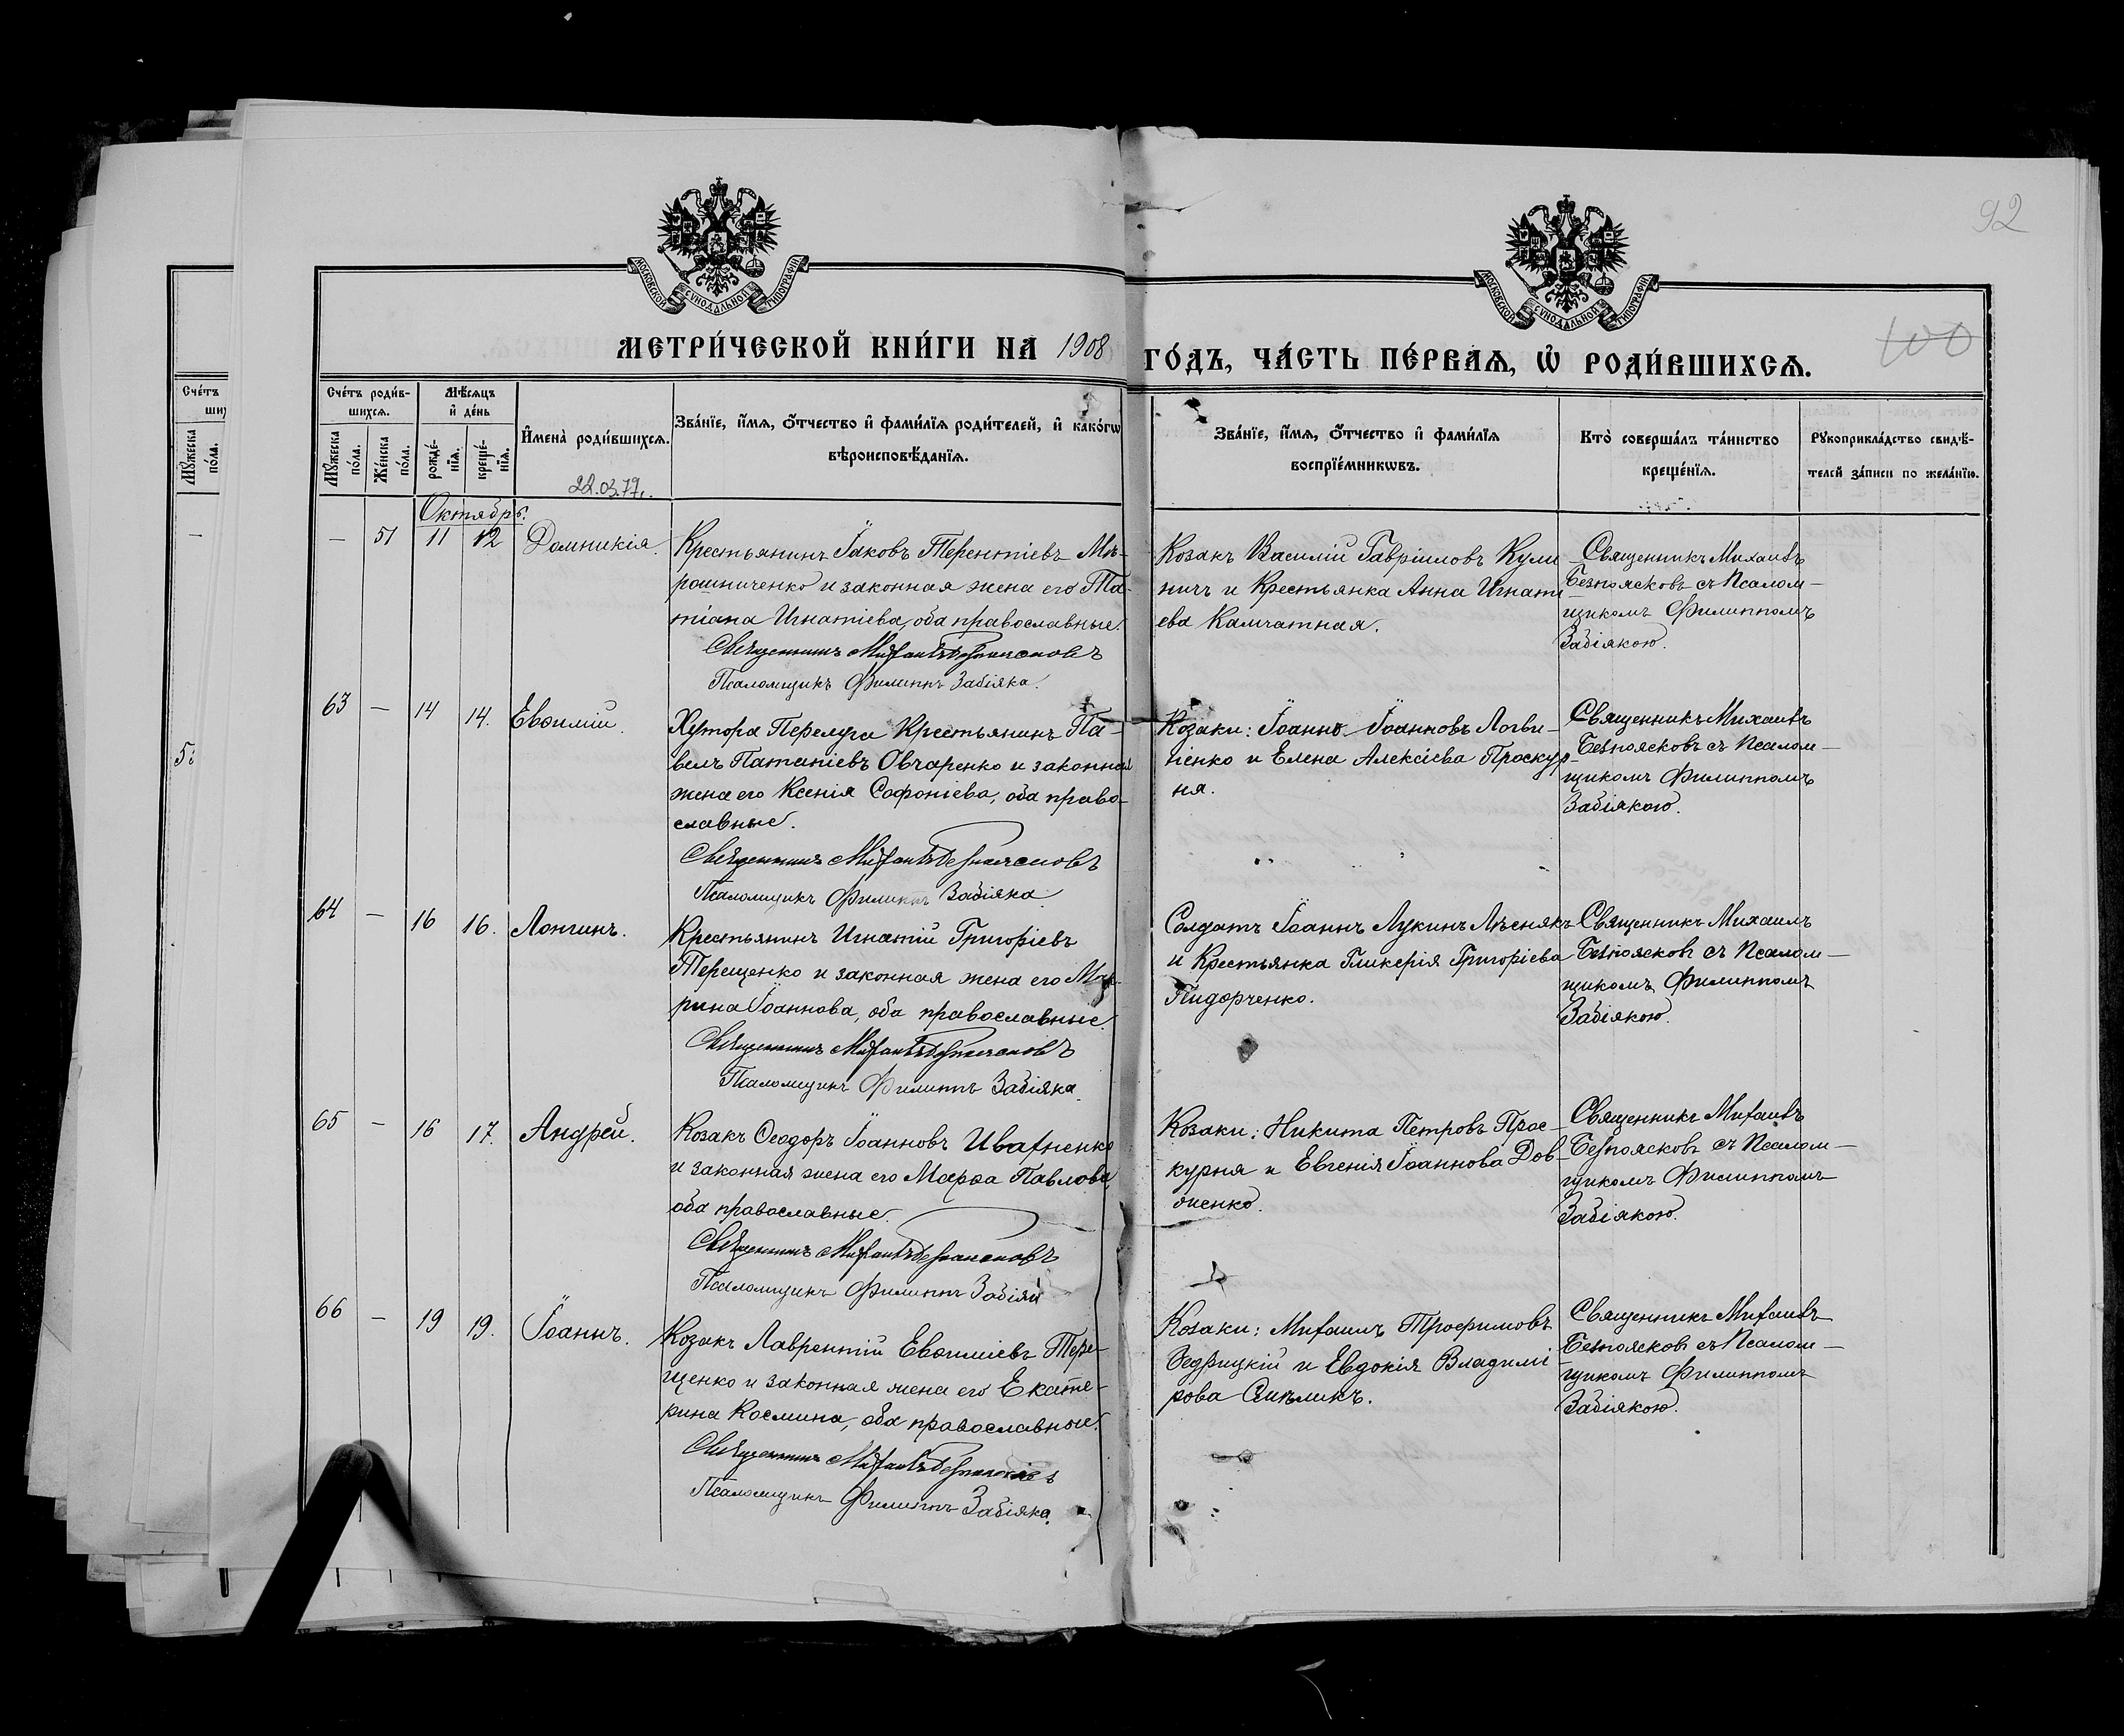 92
МОСКОВСКОЙ СѴНОДАЛЬНОЙ ТИПОГРАФІИ
МОСКОВСКОЙ СѴНОДАЛЬНОЙ ТИПОГРАФІИ
100
МЕТРИ́ЧЕСКОЙ КНИ́ГИ НА 1908
ГО́ДЪ, ЧА́СТЬ ПЕ́РВАѦ, Ѡ҆ РОДИ́ВШИХСѦ.
Сче́тъ роди́в-
шихсѧ.
Мѣ́сѧцъ
и҆ де́нь
Мꙋ́жеска по́ла.
Же́нска по́ла.
рожде́-нїѧ.
креще́-нїѧ.
И҆мена̀ роди́вшихсѧ.
Зва́нїе, и҆́мѧ, ѻ҆́тчество и҆ фами́лїѧ роди́телей, и҆ како́гѡ
вѣроисповѣ́данїѧ.
Зва́нїе, и҆́мѧ, ѻ҆́тчество и҆ фами́лїѧ
воспрїе́мникѡвъ.
Кто̀ соверша́лъ та́инство
креще́нїѧ.
Рꙋкоприкла́дство свидѣ́-
телей за́писи по жела́нїю.
22.03.77.
Октябрь.
— 51 11 12 Домникія.
Крестьянинъ Іаковъ Терентіевъ Мѣ-
рошниченко и законная жена его Та-
тіана Игнатіева, оба православные.
Священникъ Михаилъ Безпоясковъ
Псаломщикъ Филиппъ Забіяка.
Козакъ Василій Гавріиловъ Кули
ничъ и Крестьянка Анна Игнати-
ева Камчатная.
Священникъ Михаилъ
Безпоясковъ съ Псалом-
щикомъ Филиппомъ
Забіякою.
63 — 14 14. Евѳимій.
Хутора Перелуги Крестьянинъ Па-
велъ Патапіевъ Овчаренко и законная
жена его Ксенія Софоніева, оба право-
славные.
Священникъ Михаилъ Безпоясковъ
Псаломщикъ Филиппъ Забіяка
Козаки: Іоаннъ Іоанновъ Логви-
ненко и Елена Алексіева Проскур-
ня.
Священникъ Михаилъ
Безпоясковъ съ Псалом-
щикомъ Филиппомъ
Забіякою.
64 — 16 16. Лонгинъ.
Крестьянинъ Игнатій Григоріевъ
Терещенко и законная жена его Ма-
рина Іоаннова, оба православные.
Священникъ Михаилъ Безпоясковъ
Псаломщикъ Филиппъ Забіяка.
Солдатъ Іоаннъ Лукинъ Лѣснякъ
и Крестьянка Гликерія Григоріева
Пидорченко.
Священникъ Михаилъ
Безпоясковъ съ Псалом-
щикомъ Филиппомъ
Забіякою.
65 — 16 17. Андрей.
Козакъ Ѳеодоръ Іоанновъ Ивахненко
и законная жена его Марѳа Павлова,
оба православные.
Священникъ Михаилъ Безпоясковъ
Псаломщикъ Филиппъ Забіяка
Козаки: Никита Петровъ Прос-
курня и Евгенія Іоаннова Дов-
женко.
Священникъ Михаилъ
Безпоясковъ съ Псалом-
щикомъ Филиппомъ
Забіякою.
66 — 19 19. Іоаннъ.
Козакъ Лаврентій Евѳиміевъ Тере-
щенко и законная жена его Екате-
рина Космина, оба православные.
Священникъ Михаилъ Безпоясковъ
Псаломщикъ Филиппъ Забіяка.
Козаки: Михаилъ Трофимовъ
и Евдокія Владимі-
рова
Священникъ Михаилъ
Безпоясковъ съ Псалом-
щикомъ Филиппомъ
Забіякою.